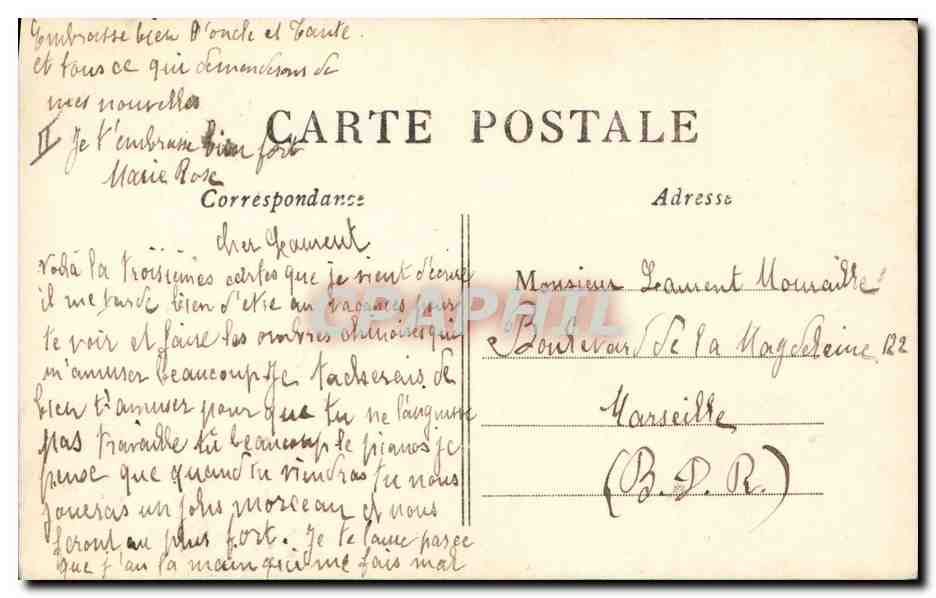 Embrasse bien l'oncle et Tante.
et tous ce qui demanderons de
mes nouvelles
II Je t'embrasse bien fort
Marie Rose
CARTE POSTALE
Correspondance
Adresse
Cher Laurent
Voilà la troisièmes cartes que je vient d'écrire
il me tarde bien d'etre au vacances pour
te voir et faire les ombres chinoises qui
m'amuser beaucoup Je tacherais de
bien t'amuser pour que tu ne languisse
pas travaille tu beaucoup le pianos je
pense que quand tu viendras tu nous
joueras un jolis morceau et nous
feront au plus fort. Je te laisse parce
que j'au la main qui me fais mal
CPAPHIL
Monsieur Laurent Mouraille
Boulevard de la Magdeleine 122
Marseille
(B. D. R.)